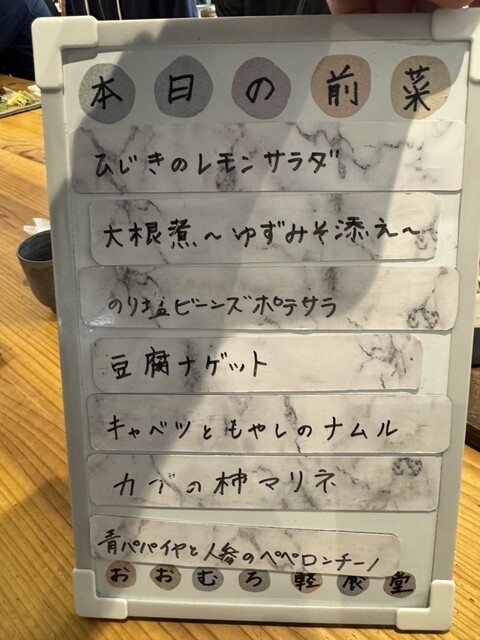 本日の前菜
ひじきのレモンサラダ
大根煮～ゆずみそ添え～
のり塩ビーンズポテサラ
豆腐ナゲット
キャベツともやしのナムル
カブの柿マリネ
青パパイヤと人参のペペロンチーノ
おおむろ軽食堂